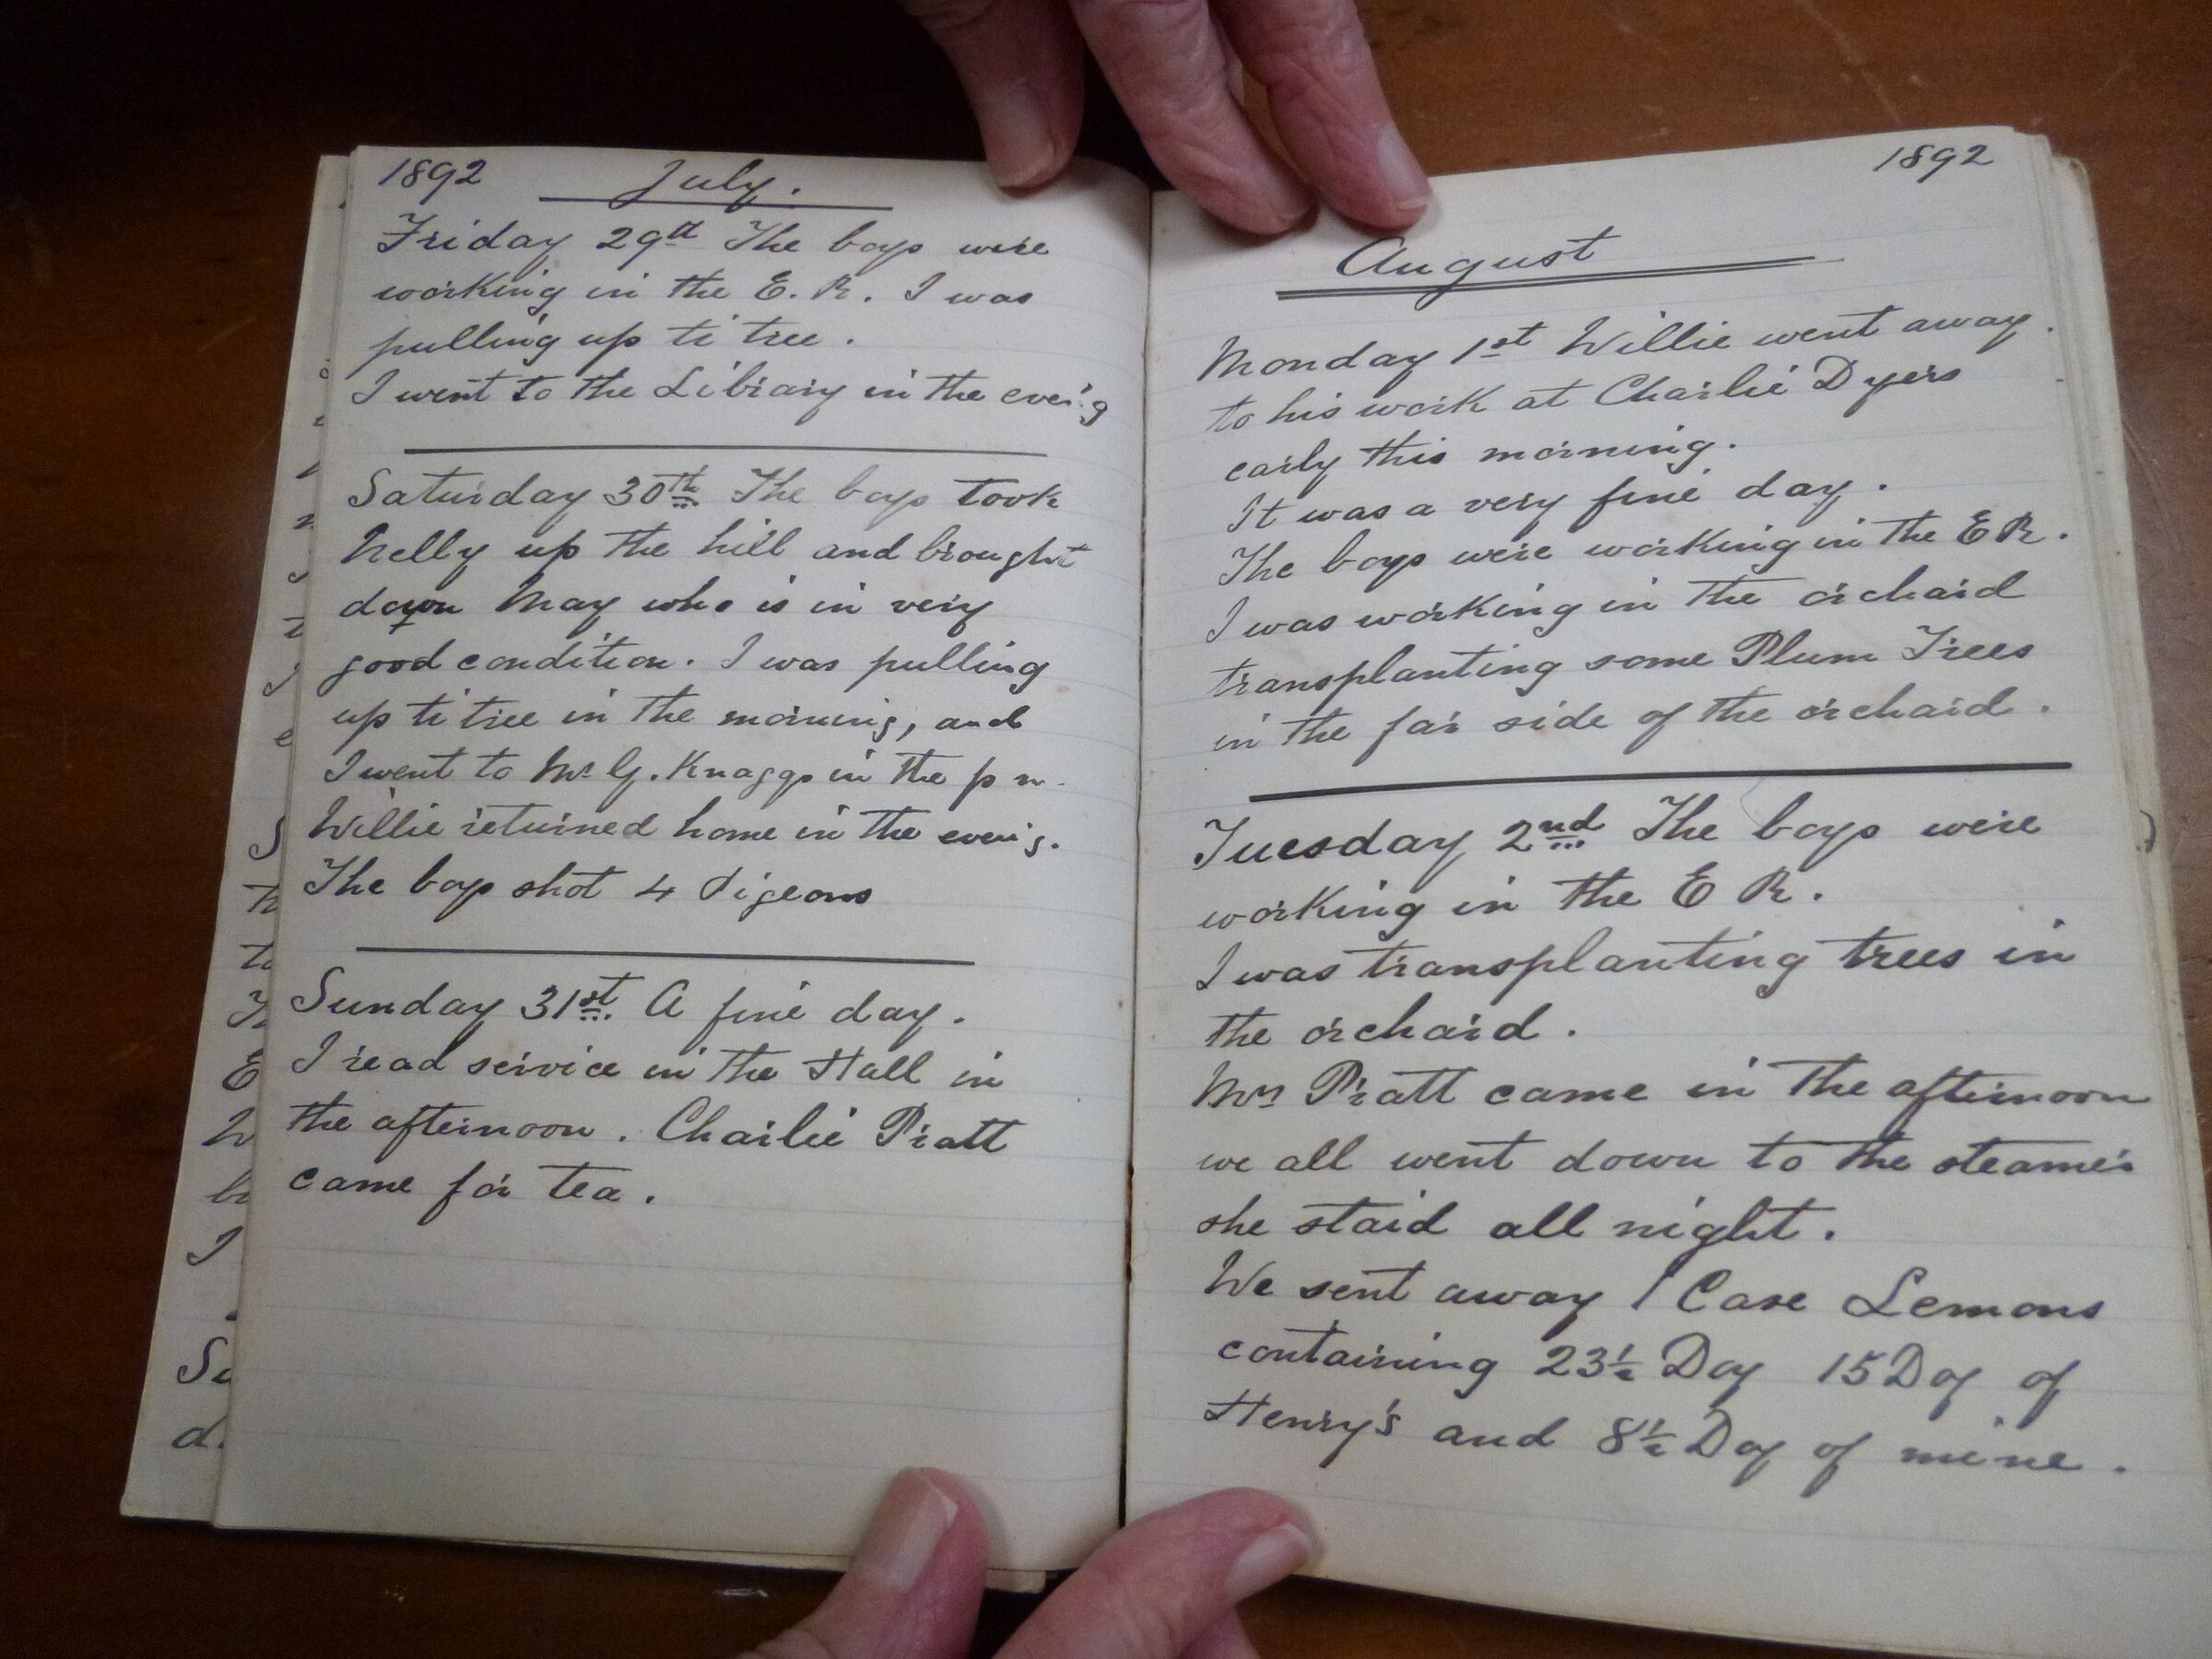 1892 July.
Friday 29th The boys were
working in the E. R. I was
pulling up ti tree.
I went to the Library in the eveig
Saturday 30th The boys took
Nelly up the hill and brought
down May who is in very
good condition. I was pulling
up ti tree in the morning, and
I went to Mr G. Knaggs in the p m.
Willie returned home in the evenig.
The boys shot 4 Pigeons
Sunday 31st A fine day.
I read service in the Hall in
the afternoon. Charlie Pratt
came for tea.
1892
August
Monday 1st Willie went away.
to his work at Charlie Dyers
early this morning.
It was a very fine day.
The boys were working in the E R.
I was working in the orchard
transplanting some Plum Trees
in the far side of the orchard.
Tuesday 2nd The boys were
working in the E R.
I was transplanting trees in
the orchard.
Mrs Pratt came in the afternoon
we all went down to the steamer
she staid all night.
We sent away 1 Case Lemons
containing 23½ Doz 15 Doz of
Henry's and 8½ Doz of mine.